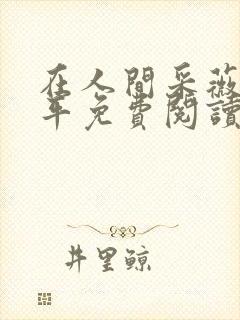 在人間采薇
年免費閱讀
井里鯨